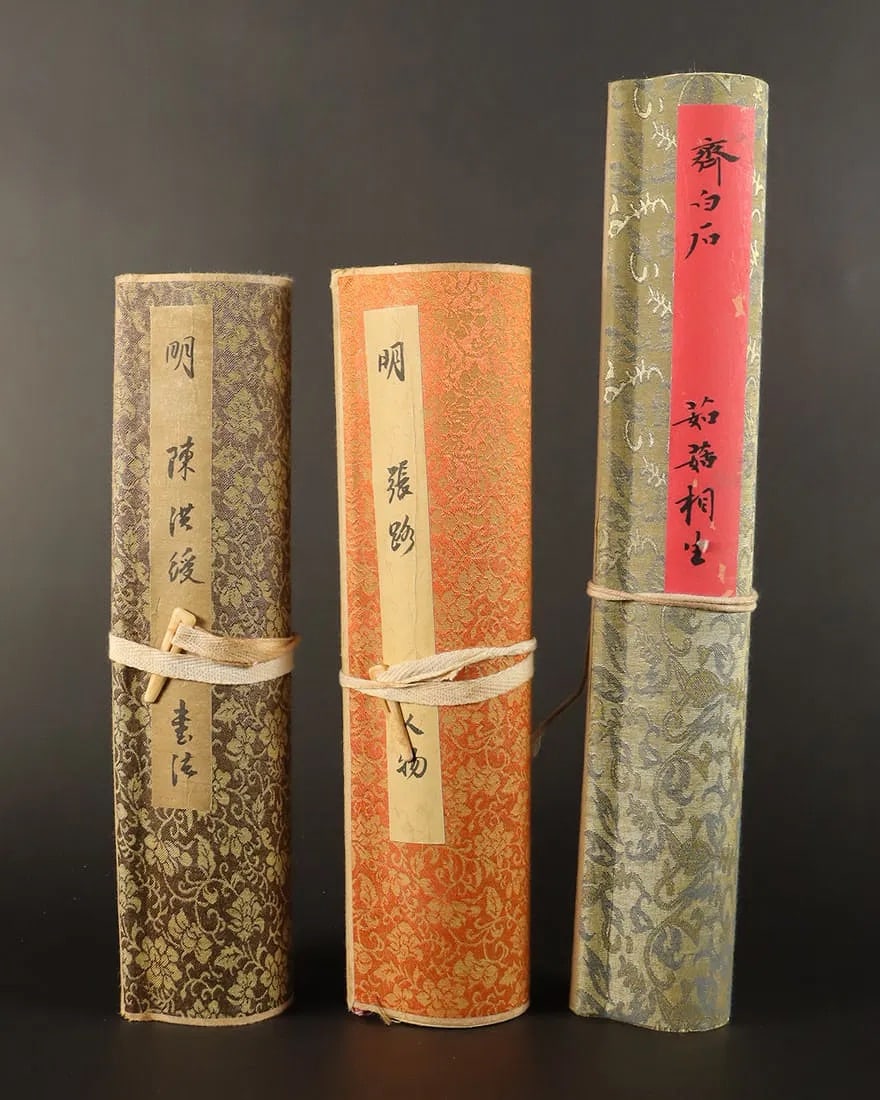 明 陳洪綬 書法
明 張路 人物
齊白石 相生